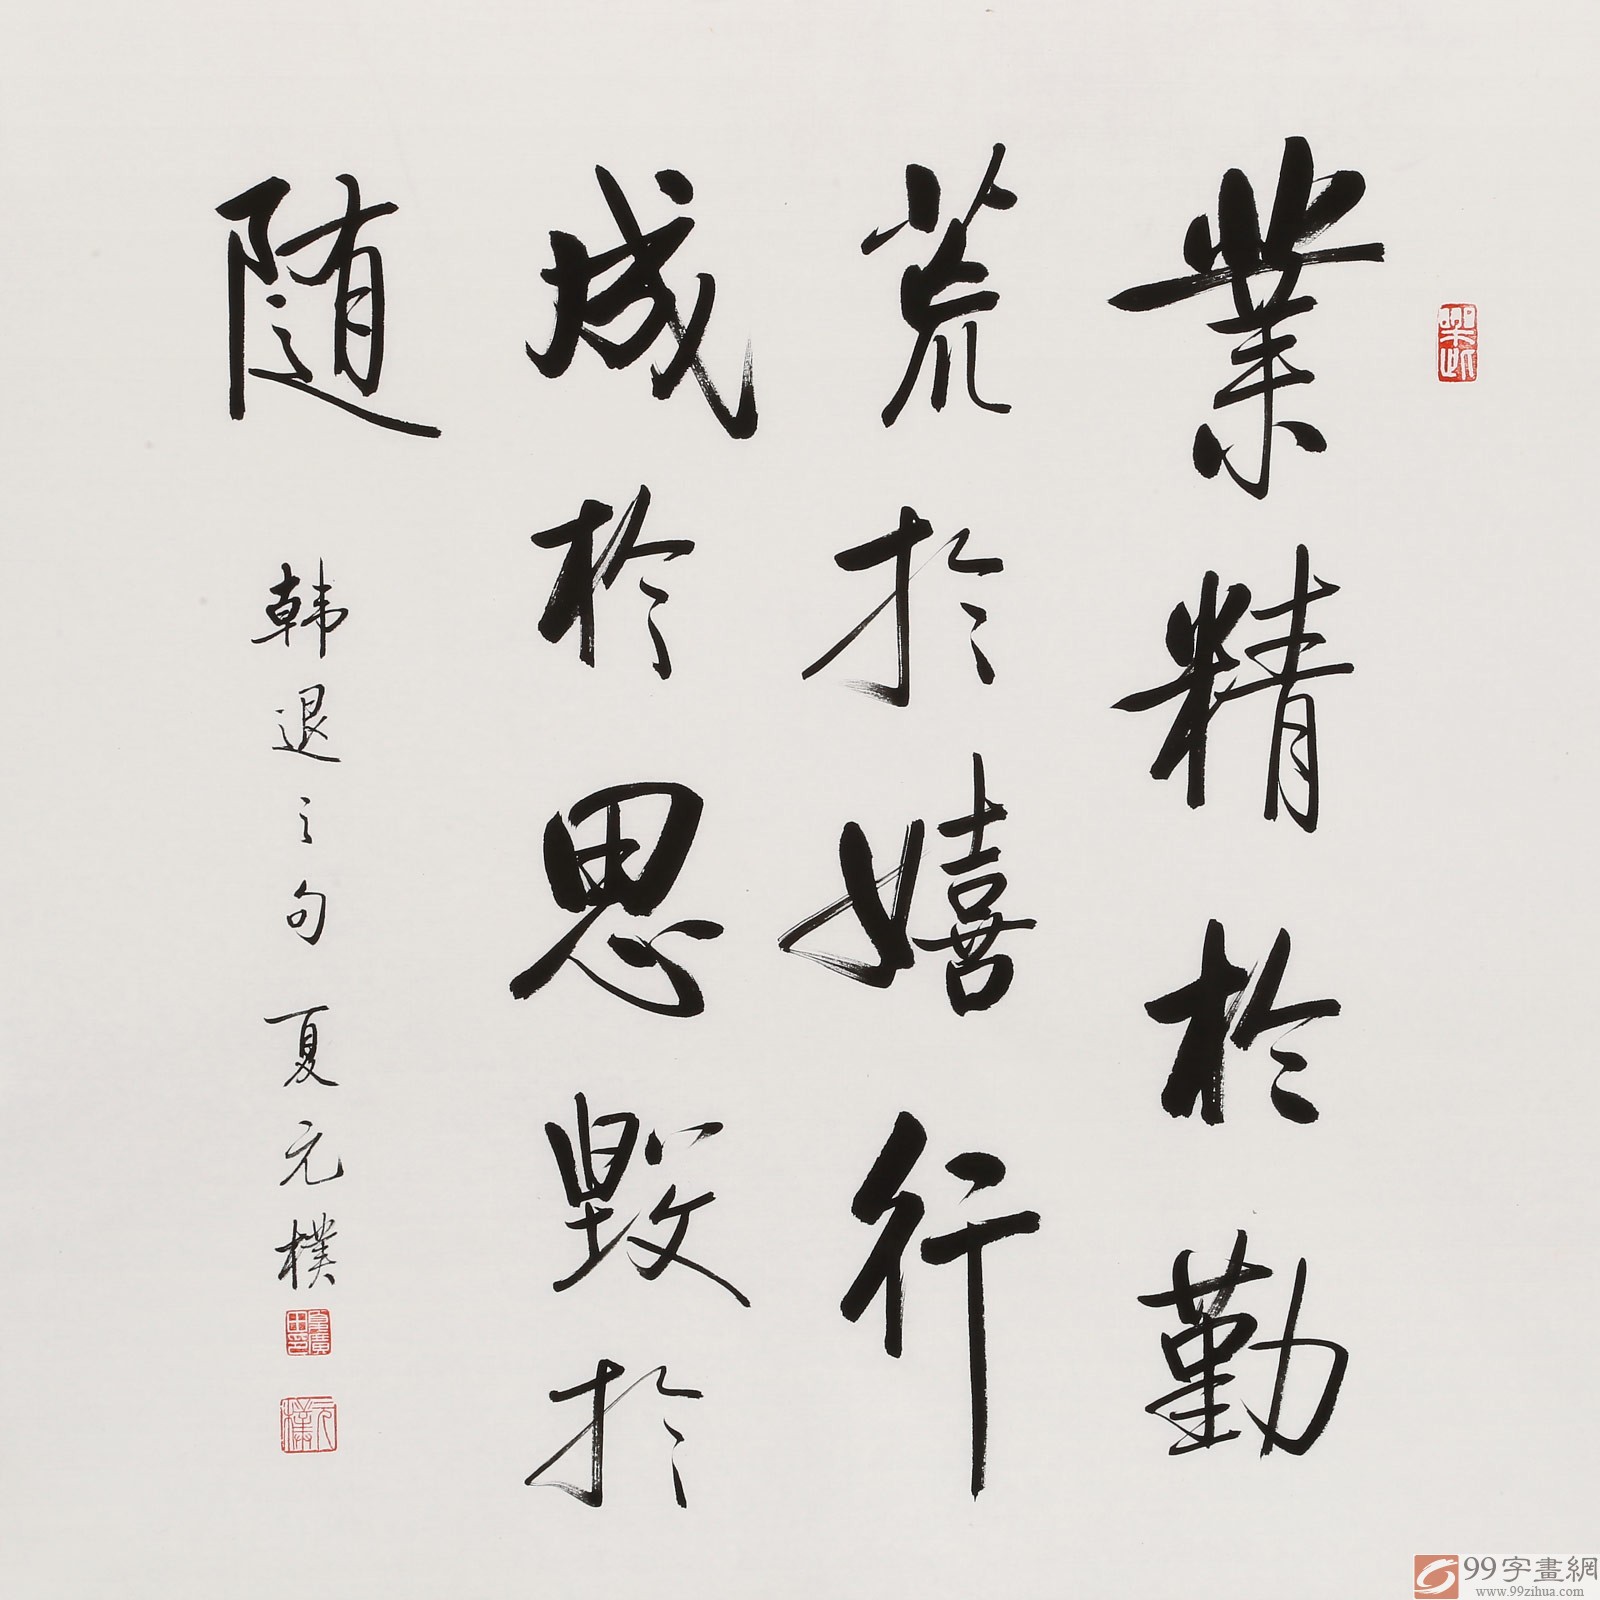 業精於勤
荒於嬉行
成於思毀於
随
韩退之句 夏元樸
元樸
99字畫網
www.99zihua.com